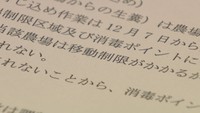 からの生糞）は農場
じ込め作業は12月7日から
制限区域及び消毒ポイントに
当該農場は移動制限がかかるか
れない。
れないことから、消毒ポイン